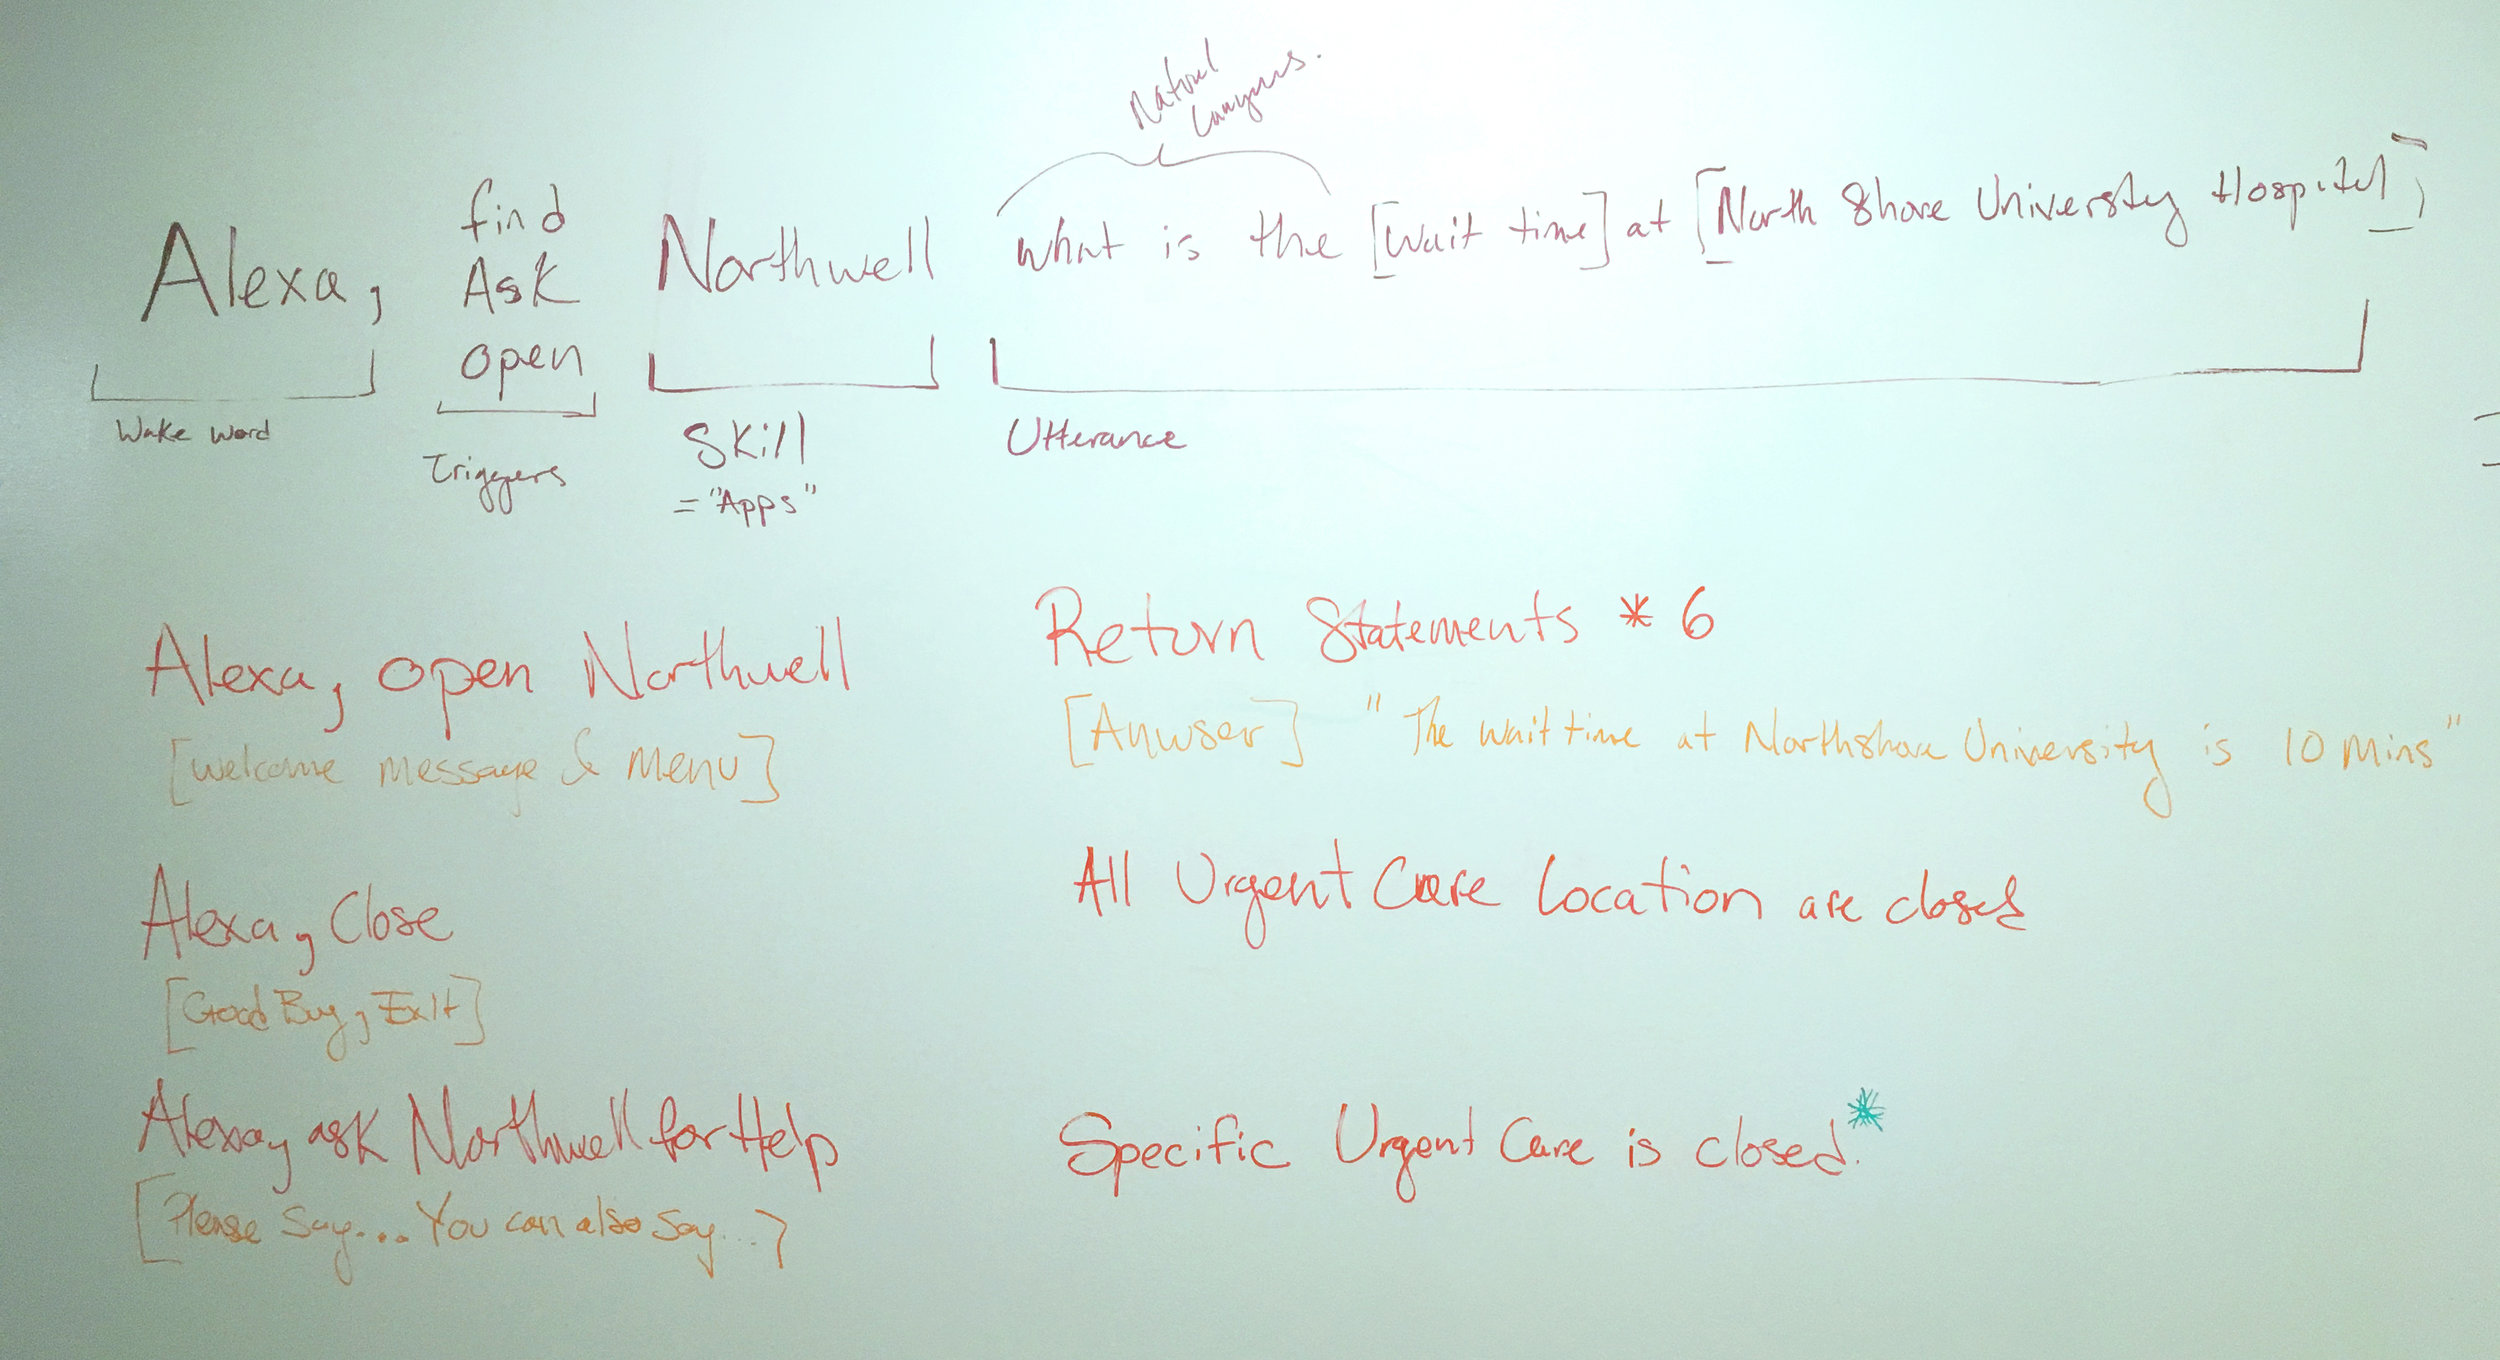 Natural
Language.
Alexa, find Ask open Northwell what is the [wait time] at [North Shore University Hospital]
Wake Word
Triggers
Skill
="Apps"
Utterance
Alexa, open Northwell
[Welcome message & menu]
Alexa, Close
[Good Buy, Exit]
Alexa, ask Northwell for Help
[Please Say... You can also say...]
Return Statements * 6
[Anwser] "The wait time at Northshore University is 10 mins"
All Urgent Care Location are closed
Specific Urgent Care is closed.*